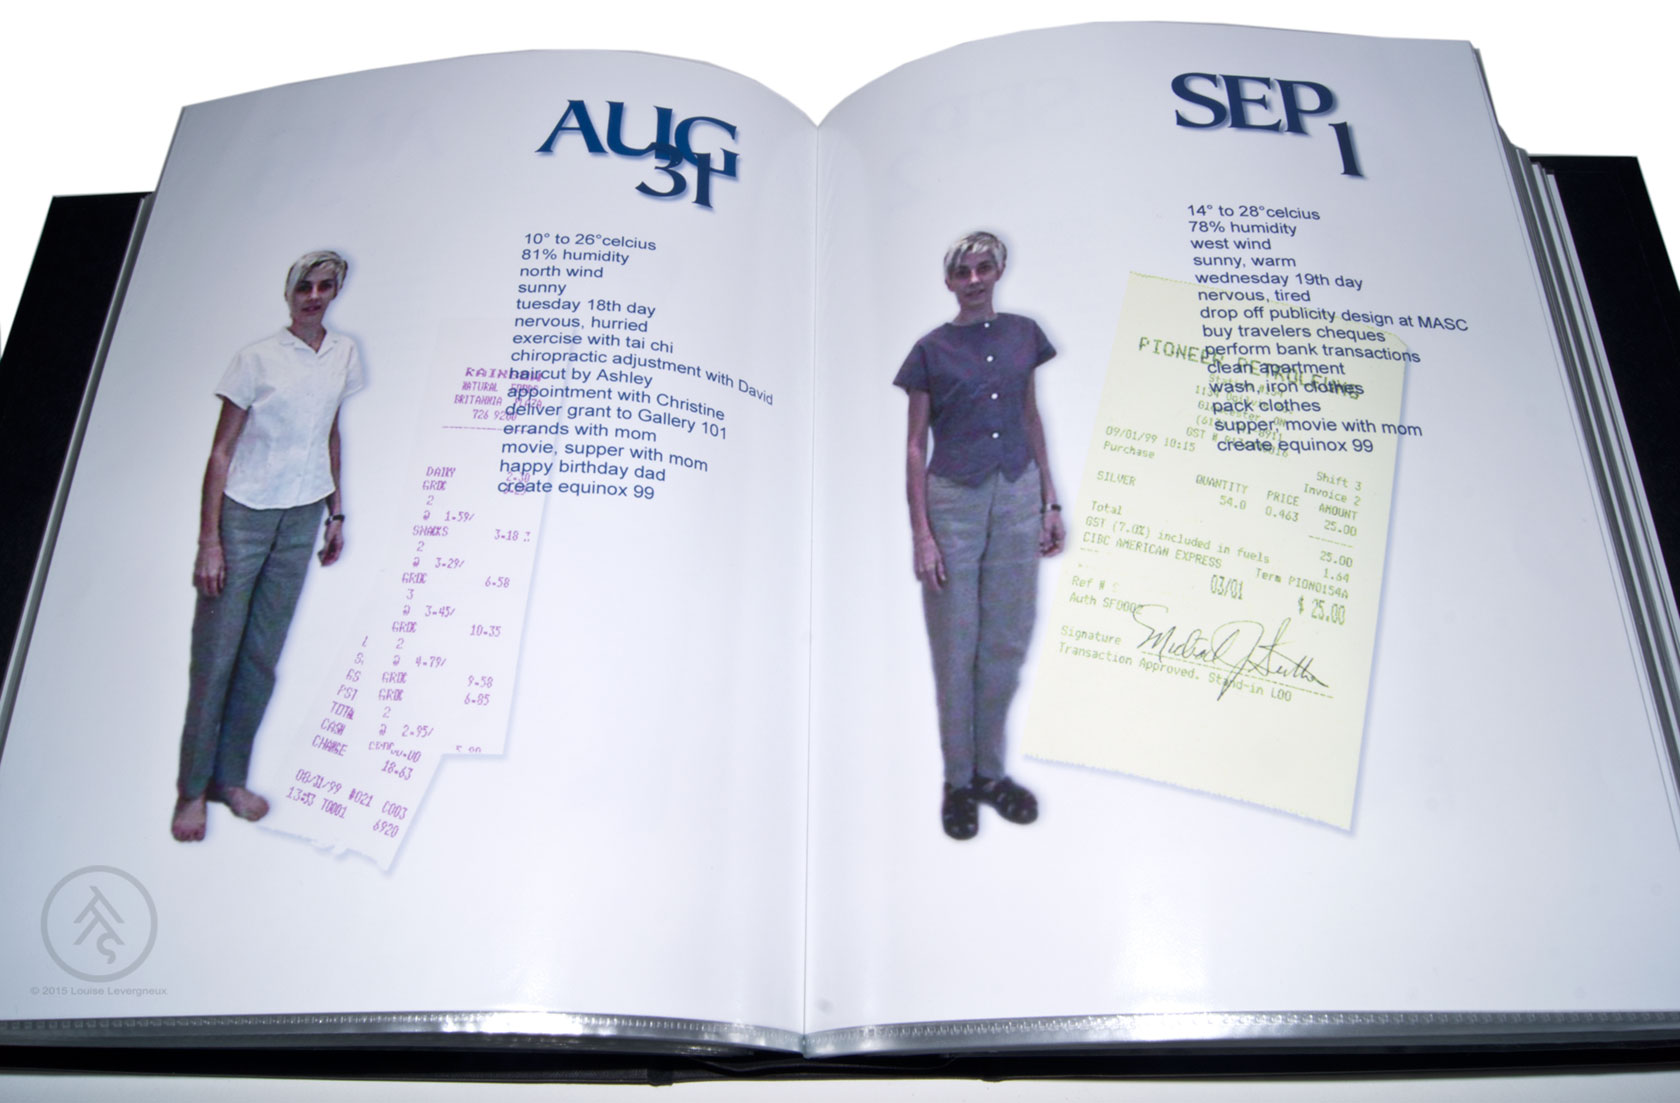 AUG
31
10° to 26°celcius
81% humidity
north wind
sunny
tuesday 18th day
nervous, hurried
exercise with tai chi
chiropractic adjustment with David
haircut by Ashley
appointment with Christine
deliver grant to Gallery 101
errands with mom
movie, supper with mom
happy birthday dad
create equinox 99
NATURAL FOODS
BRITANNIA PLAZA
DAIRY 2.30
GROC
2
@ 1.59/
SNACKS 3.18
2
@ 3.29/
GROC 6.58
3
@ 3.45/
GROC 10.35
2
@ 4.79/
GROC 9.58
PST GROC 6.85
TOTAL 2
CASH @ 2.95/
CHANGE
18.63
08/31/99 #021 C003
13:53 T0001 6920
© 2015 Louise Levergneux
SEP
1
14° to 28°celcius
78% humidity
west wind
sunny, warm
wednesday 19th day
nervous, tired
drop off publicity design at MASC
buy travelers cheques
perform bank transactions
clean apartment
wash, iron clothes
pack clothes
supper, movie with mom
create equinox 99
PIONEER PETROLEUMS
09/01/99 10:15
Purchase
Shift 3
Invoice 2
SILVER QUANTITY PRICE AMOUNT
54.0 0.463 25.00
Total 25.00
GST (7.0%) included in fuels 1.64
CIBC AMERICAN EXPRESS Term PION0154A
03/01 $ 25.00
Ref #
Auth SF0002
Signature
Transaction Approved. Stand-in L00